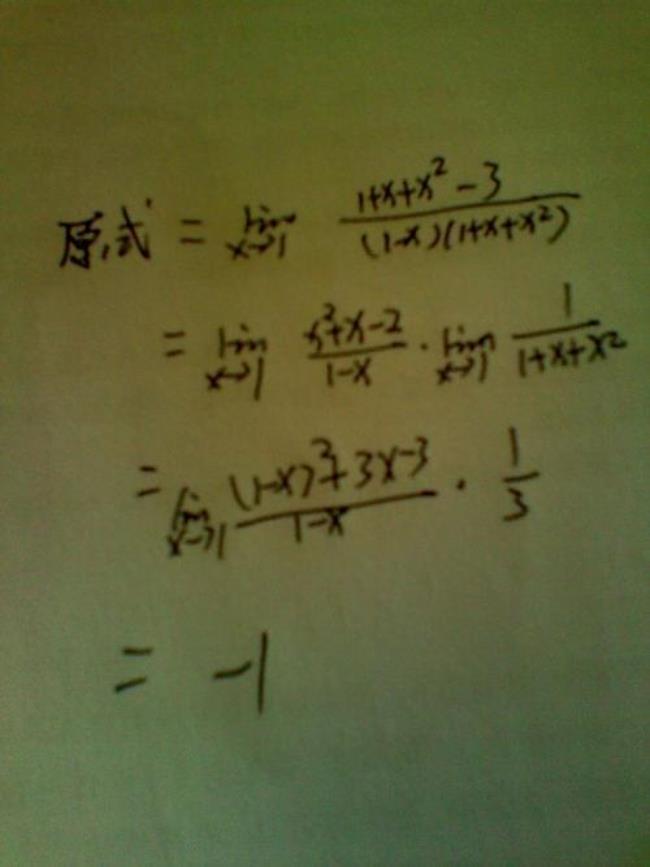 原式 = lim x→1 (1+x+x² - 3)/((1-x)(1+x+x²))
= lim x→1 (x²+x-2)/(1-x) · lim x→1 1/(1+x+x²)
= lim x→1 ((1-x)²+3x-3)/(1-x) · 1/3
= -1